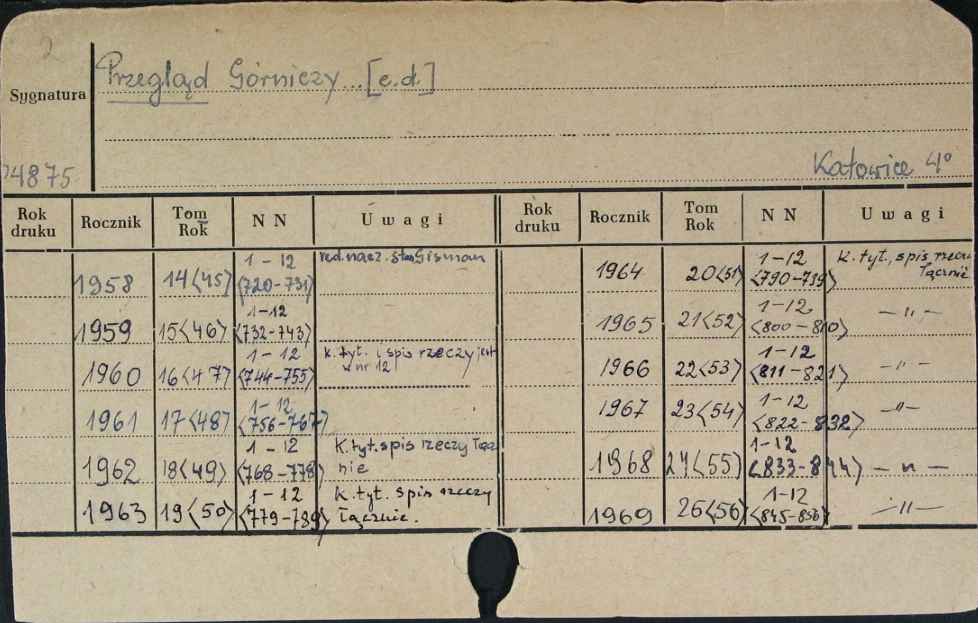 2
Przegląd Górniczy...[c.d.]
Sygnatura
4875
Katowice 4°
Rok druku Rocznik Tom Rok N N Uwagi Rok druku Rocznik Tom Rok N N Uwagi
1958 14<45> 1-12 <720-731> red. nacz. Stan Gisman
1959 15<46> 1-12 <732-743>
1960 16<47> 1-12 <744-755> k. tyt. i spis rzeczy jest w nr 12
1961 17<48> 1-12 <756-767>
1962 18<49> 1-12 <768-778> K. tyt. spis rzeczy łącznie
1963 19<50> 1-12 <779-789> K. tyt. spis rzeczy łącznie.
1964 20<51> 1-12 <790-799> K. tyt., spis rzeczy łącznie
1965 21<52> 1-12 <800-810> -"-
1966 22<53> 1-12 <811-821> -"-
1967 23<54> 1-12 <822-832> -"-
1968 24<55> 1-12 <833-844> -"-
1969 26<56> 1-12 <845-856> -"-